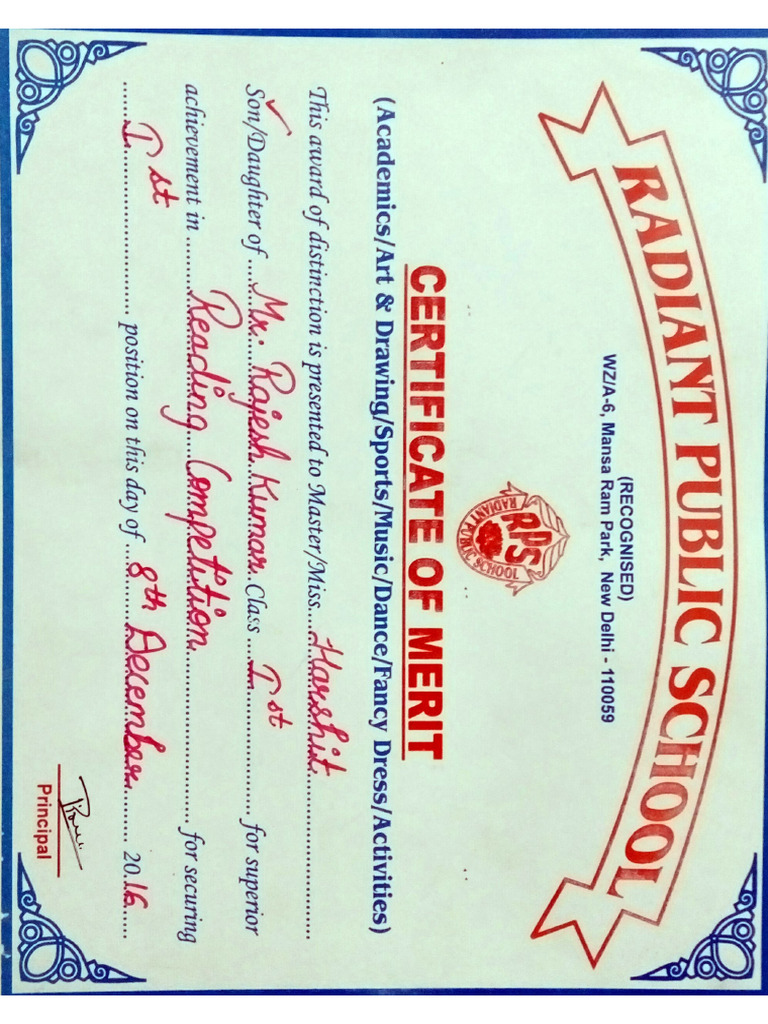 RADIANT PUBLIC SCHOOL
(RECOGNISED)
WZ/A-6, Mansa Ram Park, New Delhi - 110059
RPS
RADIANT PUBLIC SCHOOL
CERTIFICATE OF MERIT
(Academics/Art & Drawing/Sports/Music/Dance/Fancy Dress/Activities)
This award of distinction is presented to Master/Miss....Harshit....
Son/Daughter of ....Mr. Rajesh Kumar.... Class ....Ist.... for superior
achievement in ....Reading Competition.... for securing
....Ist.... position on this day of ....8th December.... 2016....
Principal